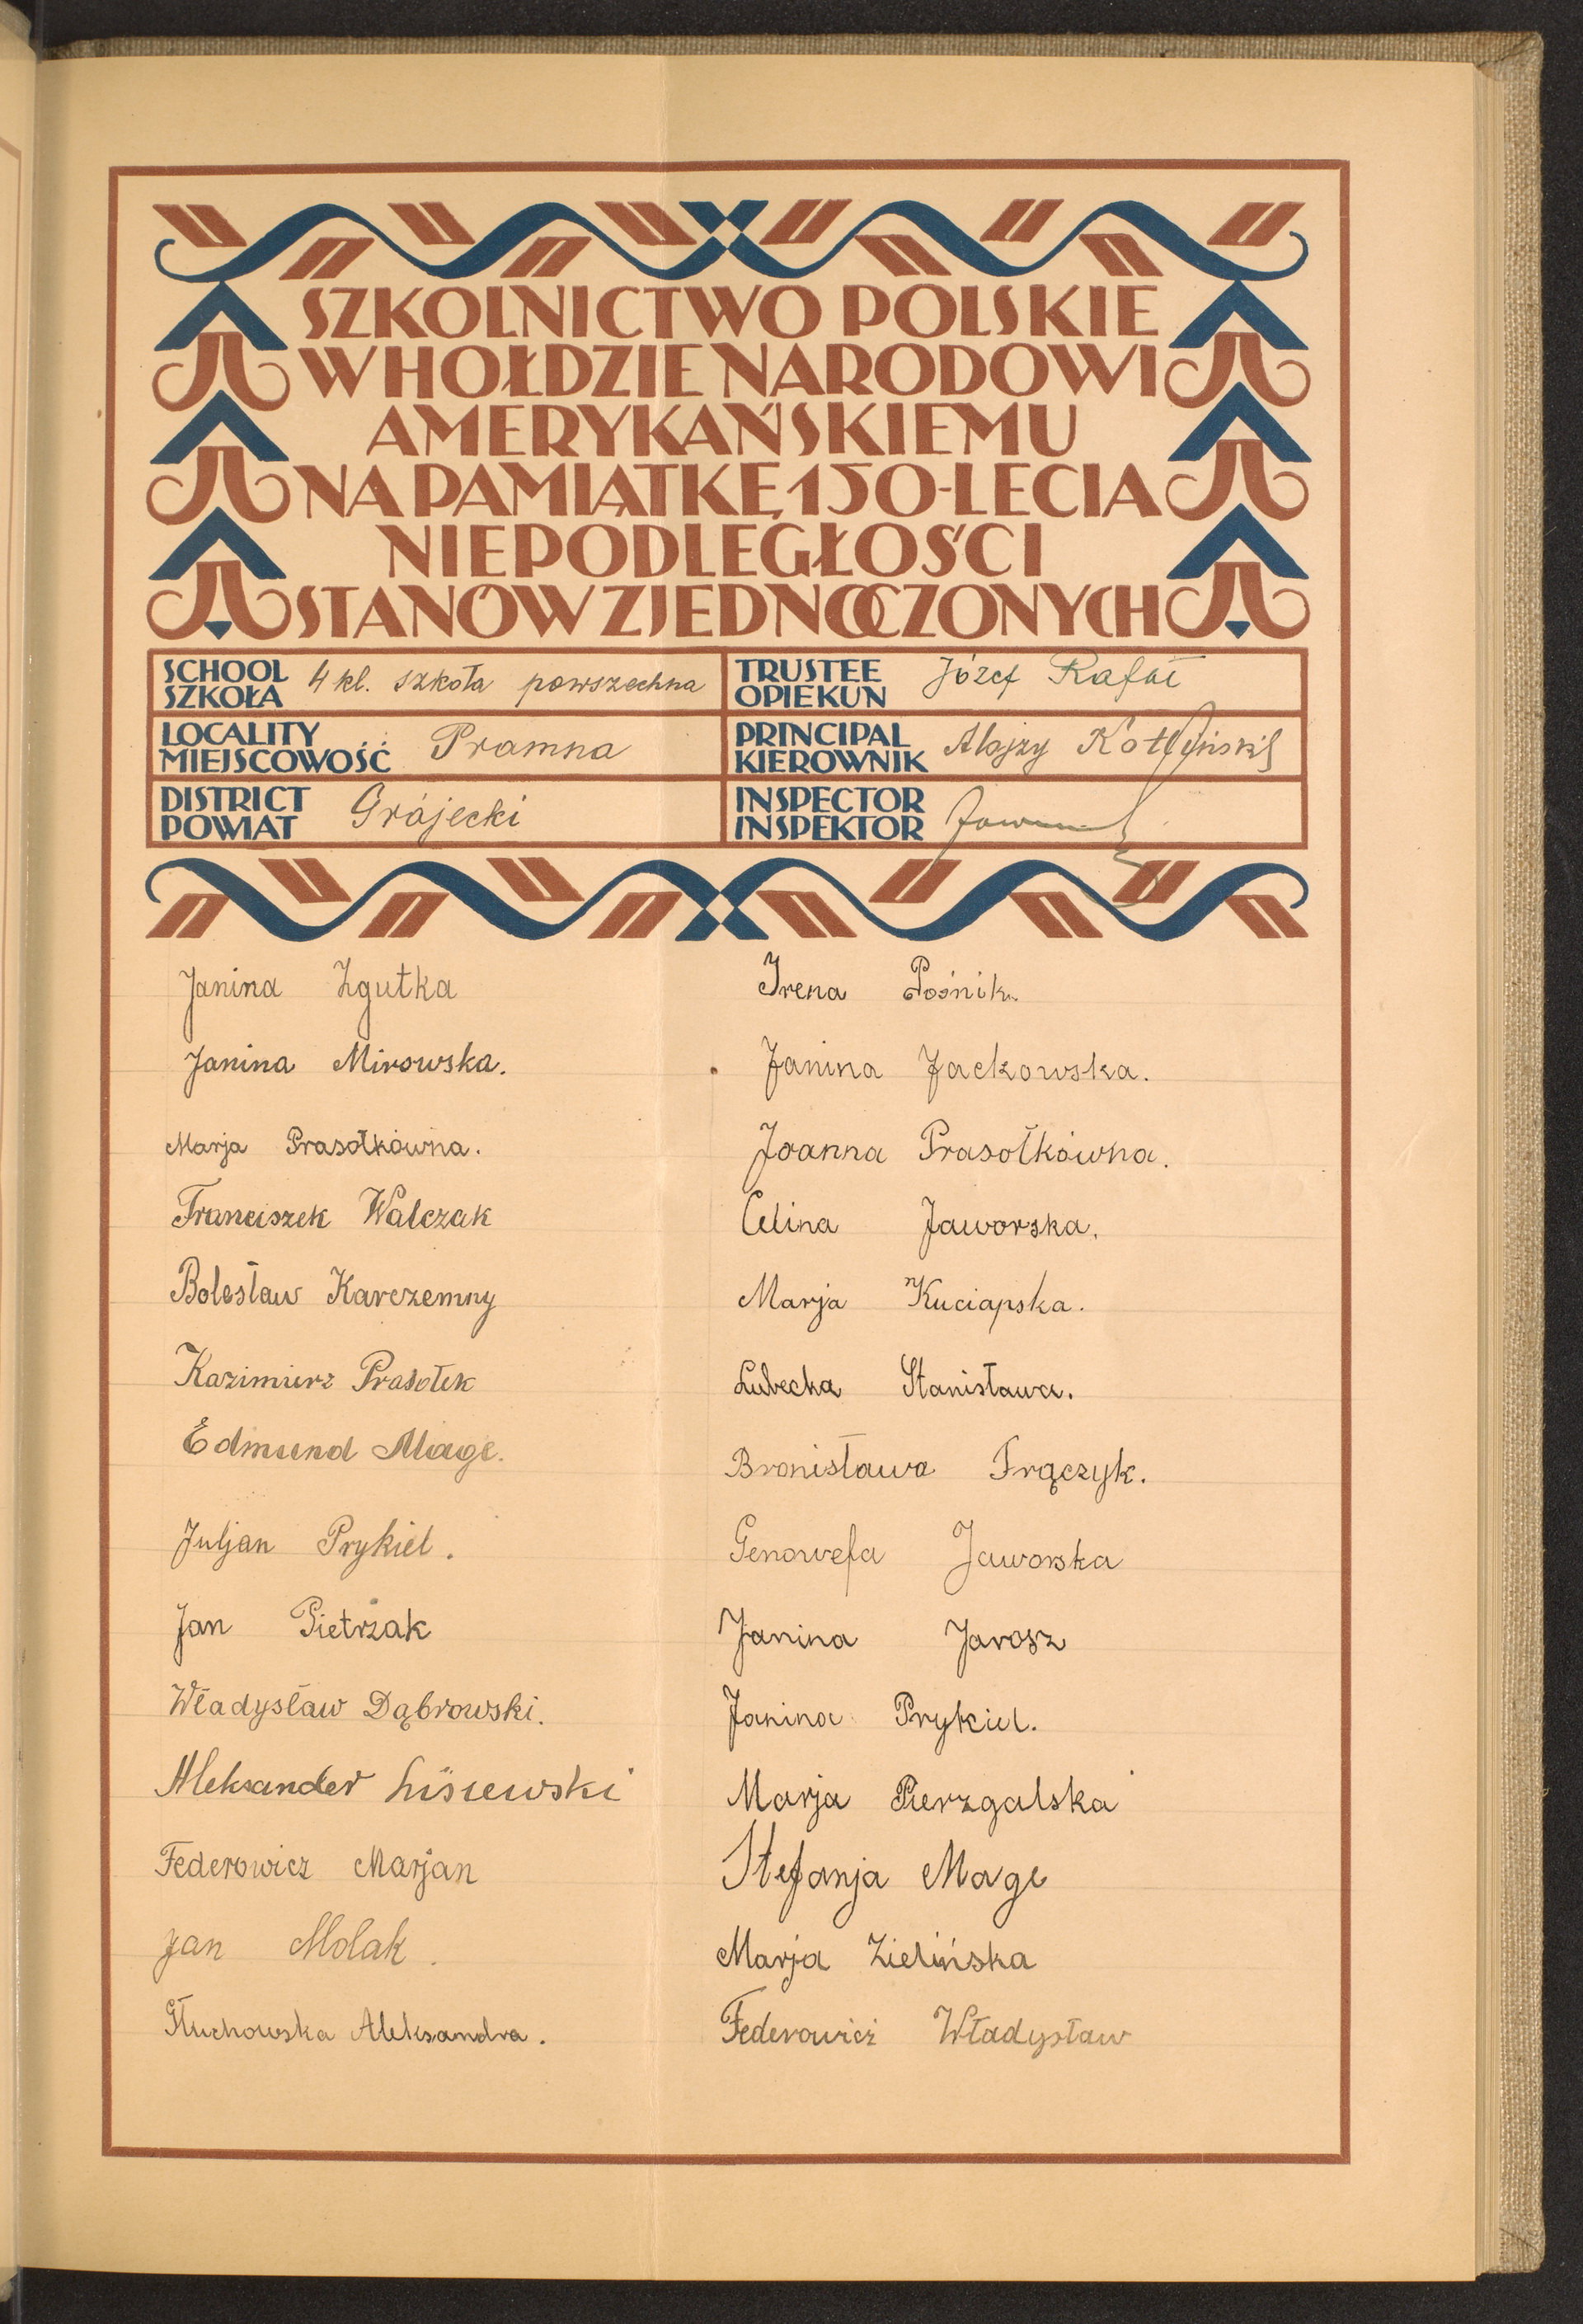 SZKOLNICTWO POLSKIE
W HOŁDZIE NARODOWI
AMERYKAŃSKIEMU
NA PAMIĄTKĘ 150-LECIA
NIEPODLEGŁOŚCI
STANÓW ZJEDNOCZONYCH
SCHOOL SZKOŁA 4 kl. szkoła powszechna
LOCALITY MIEJSCOWOŚĆ Promna
DISTRICT POWIAT Grójecki
TRUSTEE OPIEKUN Józef Rafał
PRINCIPAL KIEROWNIK Alojzy
INSPECTOR INSPEKTOR
Janina Zgutka
Janina Mirowska.
Marja Prasołkówna.
Franciszek Walczak
Bolesław Karczemny
Kazimierz Prasołek
Edmund Mage.
Juljan Prykiel.
Jan Pietrzak
Władysław Dąbrowski.
Aleksander Lisiewski
Federowicz Marjan
Jan Molak.
Głuchowska Aleksandra.
Irena Pośnik.
Janina Jackowska.
Joanna Prasołkówna.
Celina Jaworska.
Marja Kuciapska.
Lubecka Stanisława.
Bronisława Frączyk.
Genowefa Jaworska
Janina Jarosz
Janina Prykiel.
Marja Pierzgalska
Stefanja Mage
Marja Zielińska
Federowicz Władysław